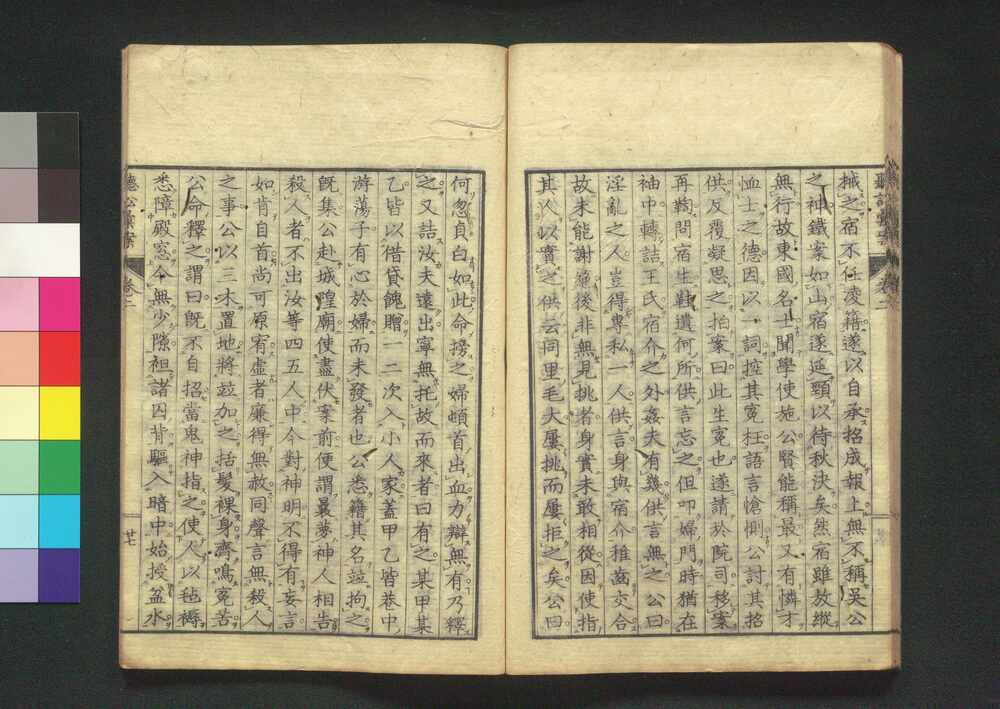 械之宿不任凌籍遂以自承招成報上無不稱吳公
之神鐵案如山宿遂延頸以待秋決矣然宿雖放縱
無行故東國名士聞學使施公賢能稱最又有憐才
恤士之德因以一詞控其冤枉語言愴惻公討其招
供反覆凝思之拍案曰此生冤也遂請於院司移案
再鞫問宿生鞋遺何所供言忘之但叩婦門時猶在
袖中轉詰王氏宿介之外姦夫有幾供言無之公曰
淫亂之人豈得專私一人供言身與宿介稚齒交合
故未能謝絶後非無見挑者身實未敢相從因使指
其人以實之供云同里毛大屢挑而屢拒之矣公曰
何忽貞白如此命搒之婦頓首出血力辯無有乃釋
之又詰汝夫遠出寧無托故而來者曰有之某甲某
乙皆以借貸餽贈一二次入小人家蓋甲乙皆巷中
游蕩子有心於婦而未發者也公悉籍其名竝拘之
既集公赴城隍廟使盡伏案前便謂曩夢神人相告
殺人者不出汝等四五人中今對神明不得有妄言
如肯自首尚可原宥虛者廉得無赦同聲言無殺人
之事公以三木置地將竝加之括髮裸身齊鳴冤苦
公命釋之謂曰既不自招當鬼神指之使人以毡褥
悉障殿窓令無少隙袒諸囚背驅入暗中始授盆水
卷二
廿七